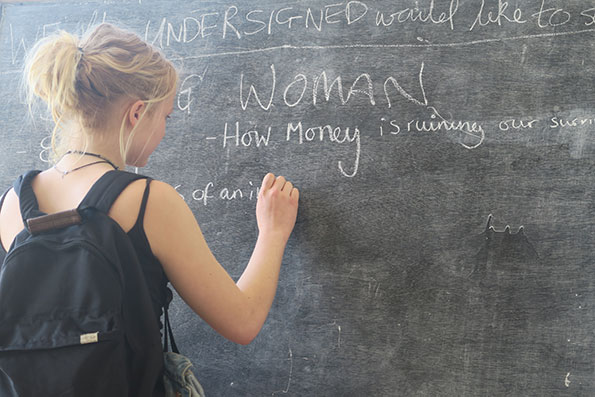 WE UNDERSIGNED would like to
WOMAN
- How Money is ruining our
of an